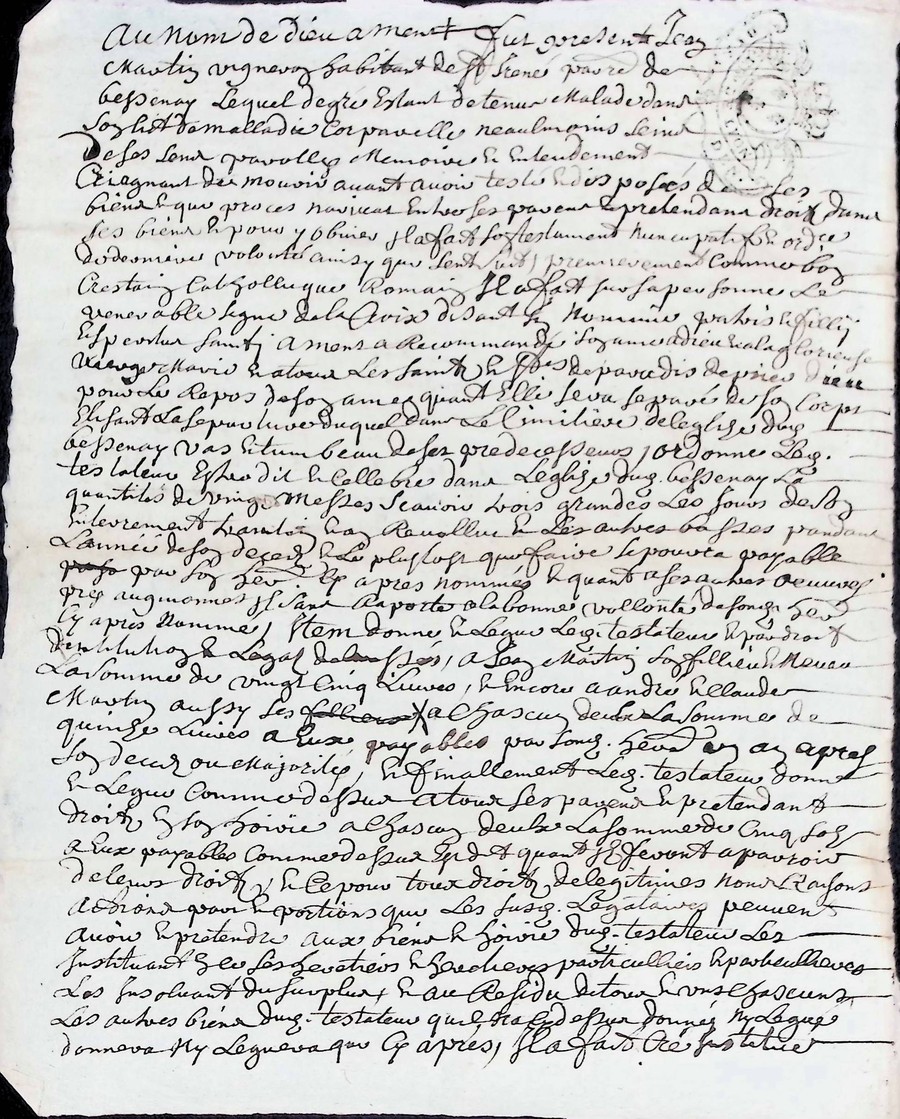 Au nom de dieu ament fut present Jean
Martin vigneron habitant de st Irené parre de
bessenay Lequel de gré Estant detenu Malade dans
son lict de malladie Corporelle neaulmoins seine
De ses sens parolles Memoire et Entendement
Creignant de mourir avant avoir testé et disposés de ses
biens et que proces narivat Entre ses parens et pretendans droitz dans
ses biens et pour y obvier Il a fait son testament nuncupatif et ordre
de derniere volonté ainsy que sent suit, premierement Comme bon
Crestain Catholluque Romain Il a fait sur sa personne Le
venerable signe de la Croix disant In Nomine patris et fillij
Et speritus santij amens a Recommandé son ame a dieu et a la glorieuse
vierge Marie et a tous Les saints et stes de paradis de prier dieu
pour Le Repos de son ame quant Elle sera separé de son Corps
Elisant La sepulture duquel dans Le Cimitiere de leglise dud.
bessenay vas et tumbeau de ses predecesseurs, ordonne Led.
testateur Estre dit et Cellebre dans Leglise dud. bessenay La
quantités de vingt Messes scavoir trois grandes Les jours de son
Enterrement et an Revollu et Les autres basses pandant
L'année de son deces et Le plustost que faire se pourra payable
par son her. Cy apres nommés et quant a ses autres oeuvres
pies aumones Il san Raporte a la bonne vollonté de sond. her
Cy apres Nommé, Item donne et Legue Led. testateur et par droit
dinstitution et a Jean Martin son fillieu et Neveu
La somme de vingt Cinq Livres, et Encore a andre et Claude
Martin aussy ses a Chascun deulx La somme de
quinze Livres a Eux payables par sond. her un an apres
son deces ou Majorité, et finallement Led. testateur donne
et Legue Comme dessus a tous ses parens et pretendant
droitz En son hoirie a Chascun deulx La somme de Cinq solz
a Eux payables Comme dessus quant Ilz feront aparoir
de leurs droitz, et Ce pour tous droitz de legitimes noms Raisons
actions parts et portions que Les susd. Legataires peuvent
avoir et pretendre aux biens et hoirie dud. testateur Les
Instituant ses heretiers et herettieres particulliers et particullieres
Les du surplus, et au Residu de tous et uns Chascuns
Les autres biens dud. testateur quil na Cy dessus donnés Ny Legué
donnera Ny Leguera que Cy apres, Il a fait Créé Institué